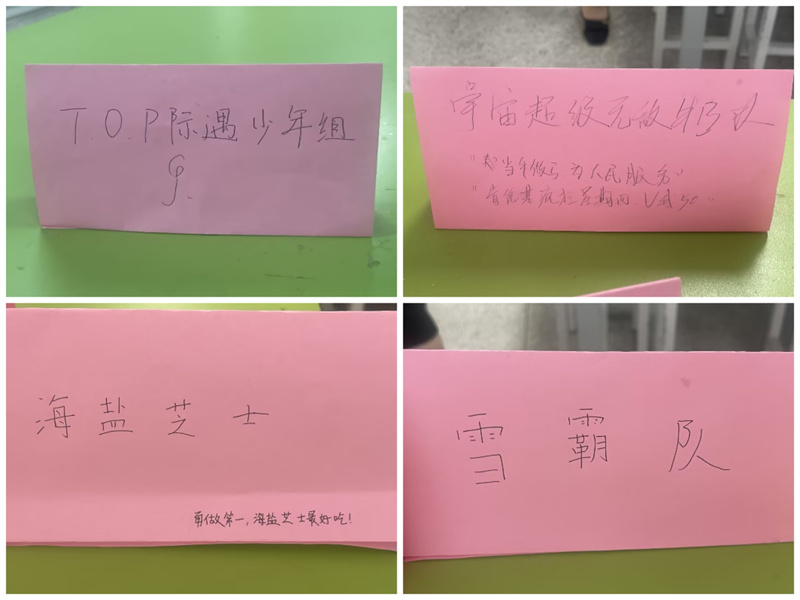 T.O.P际遇少年组
宇宙超级无敌牛B队
为人民服务"
海盐芝士
勇做第一,海盐芝士最好吃!
雪霸队